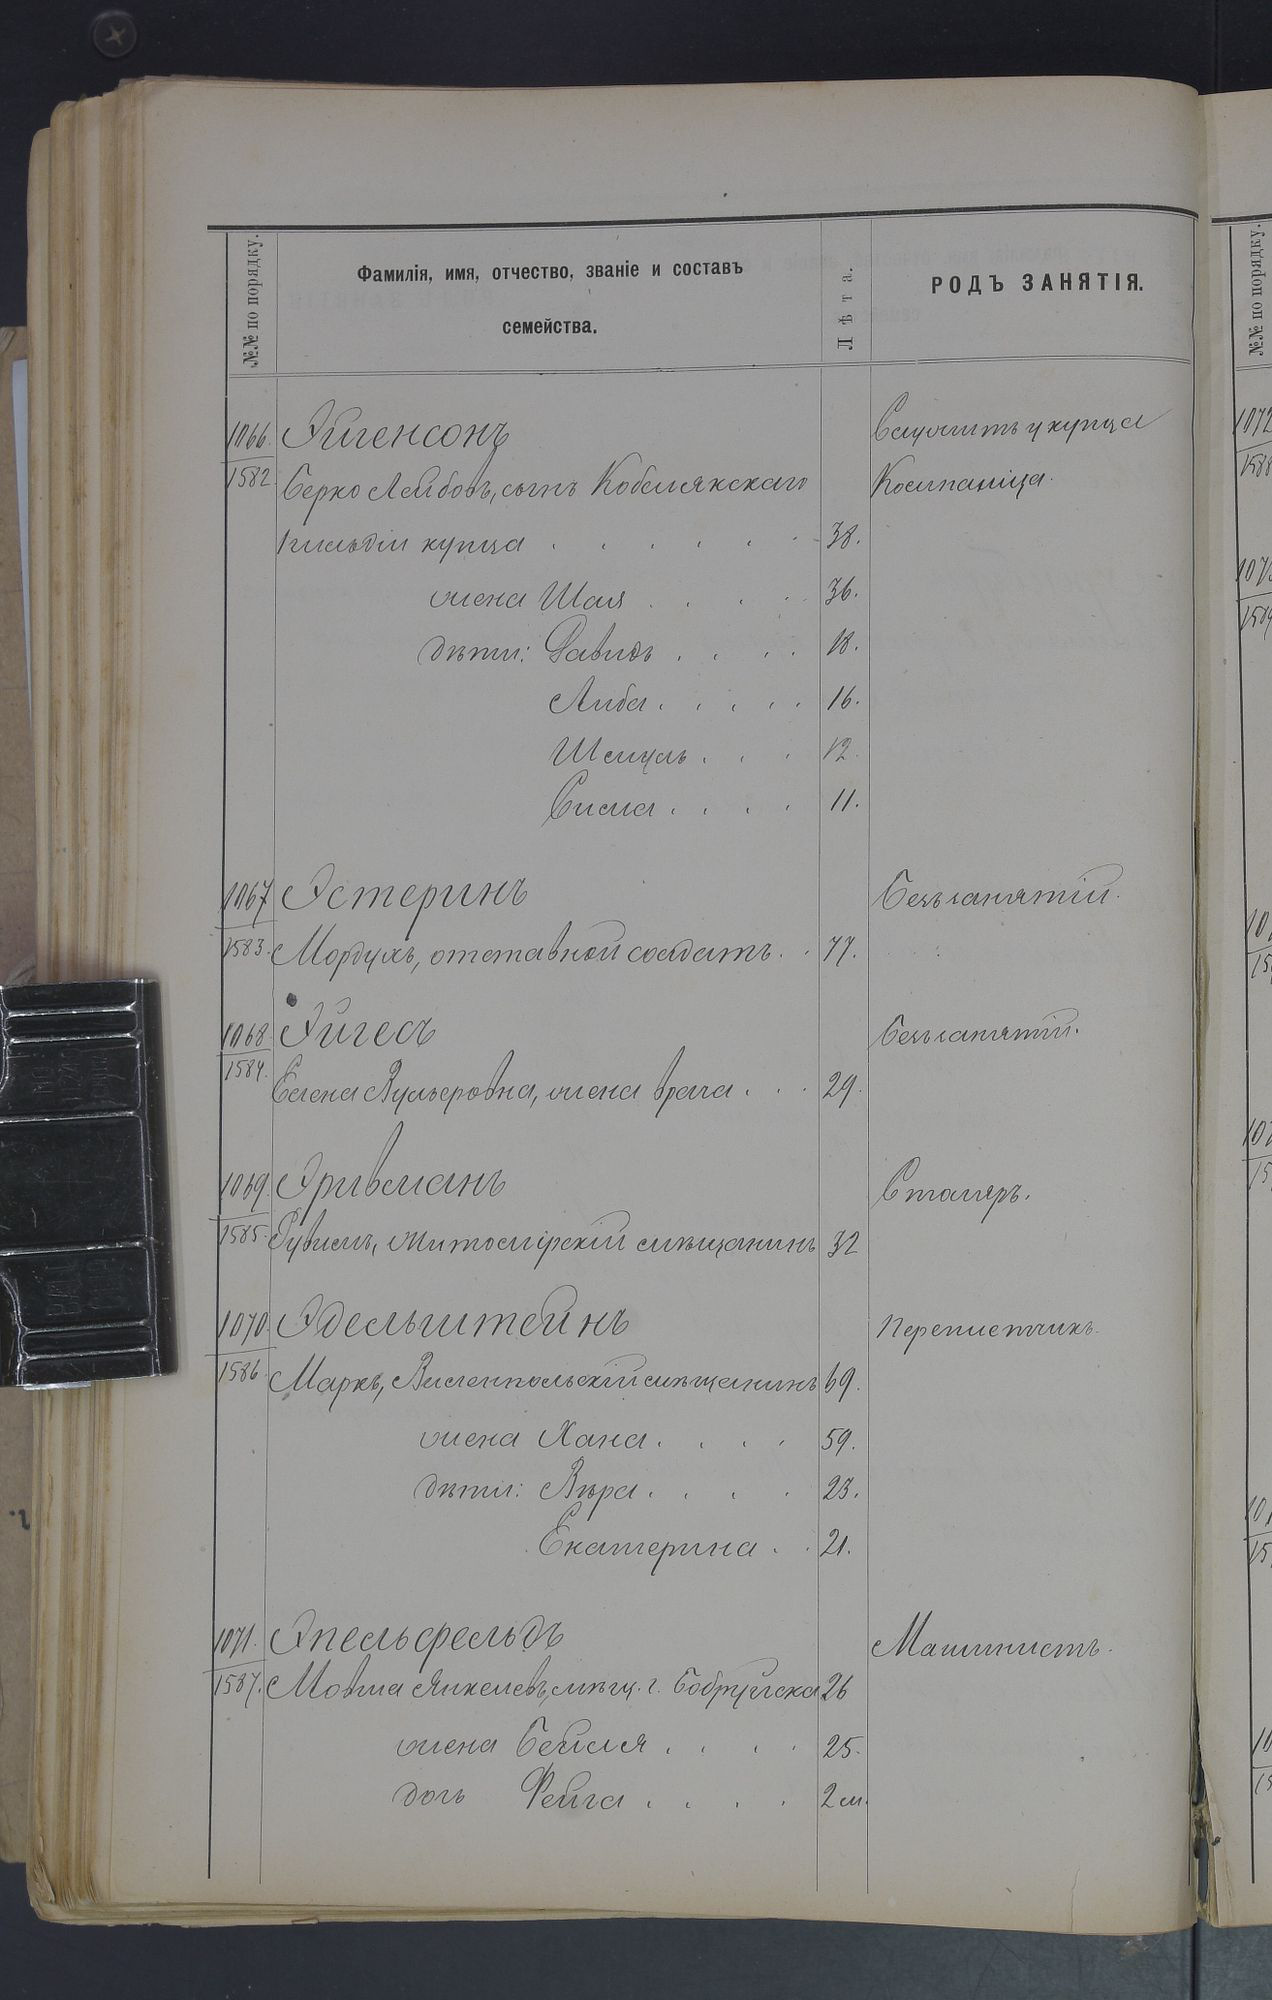 №№ по порядку.
Фамилія, имя, отчество, званіе и составъ
семейства.
Лѣта.
РОДЪ ЗАНЯТІЯ.
№№ по порядку.
1066. Эйгенсонъ Служитъ у купца
1582. Берко Лейбовъ, сынъ Кобелякскаго Компаніца.
гильдіи купца . . . . . . 38.
жена Шая . . . . 36.
дѣти: Давидъ . . . . 18.
Либа . . . . . 16.
Шмуль . . . 12.
Сима . . . . 11.
1067 Эстеринъ Безъ занятій.
1583. Мордухъ, отставной солдатъ . . 77.
1068 Эйгесъ Безъ занятій.
1584. Елена Вульфовна, жена врача . . . 29.
1069. Эривманъ Столяръ.
1585. Рувимъ, Житомірскій мѣщанинъ 32
1070. Эдельштейнъ Переписчикъ.
1586. Маркъ, мѣщанинъ 69.
жена Хана . . . . 59.
дѣти: Вѣра . . . . 23.
Екатерина . . 21.
1071. Эпельфельдъ Машинистъ.
1587. Мовша Янкелевъ, мѣщ. г. Бобруйска 26
жена Бейля . . . . 25.
дочь Фейга . . . . 2 м.
1072
1588